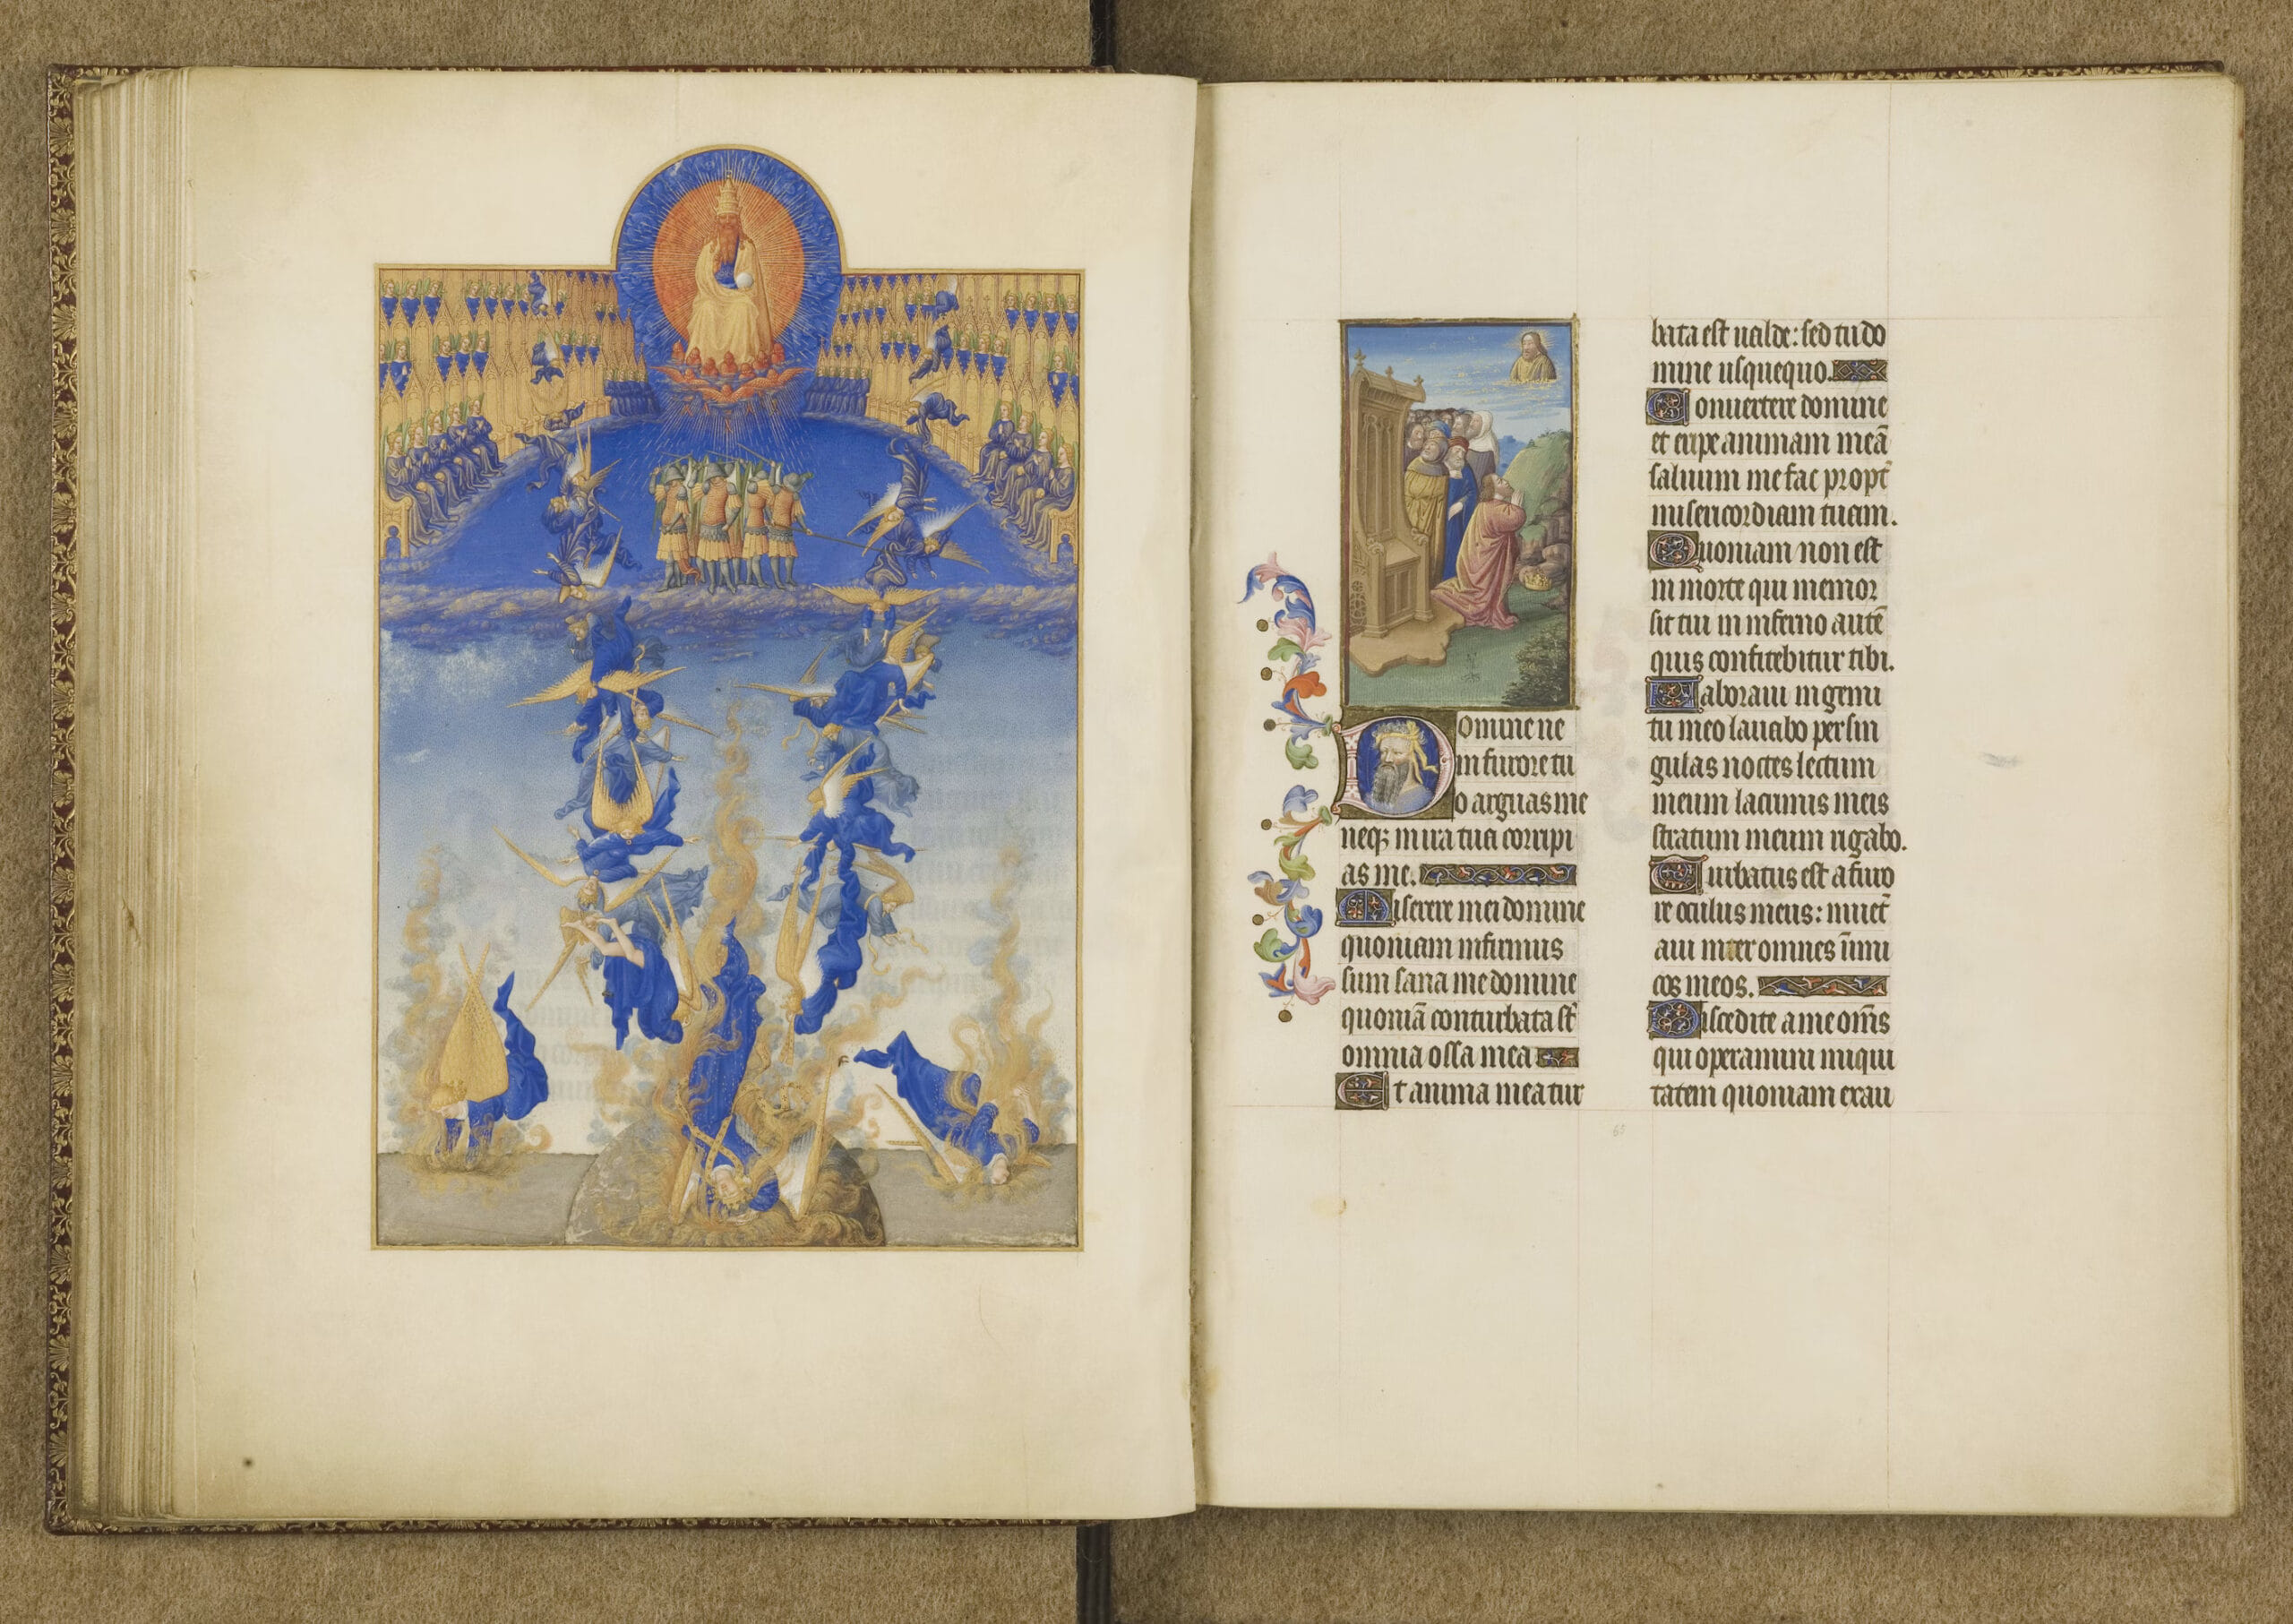 Domine ne
in furore tu
o arguas me
neqꝫ in ira tua corripi
as me.
Miserere mei domine
quoniam infirmus
sum sana me domine
quoniā conturbata st̄
omnia ossa mea
Et anima mea tur
bata est ualde: sed tu do
mine usquequo.
Conuertere domine
et eripe animam meā
saluum me fac propt̄
misericordiam tuam.
Quoniam non est
in morte qui memor
sit tui in inferno autē
quis confitebitur tibi.
Laboraui in gemi
tu meo lauabo per sin
gulas noctes lectum
meum lacrimis meis
stratum meum rigabo.
Turbatus est a furo
re oculus meus: inuet̄
aui inter omnes inimi
cos meos.
Discedite a me om̄s
qui operamini iniqui
tatem quoniam exau
65